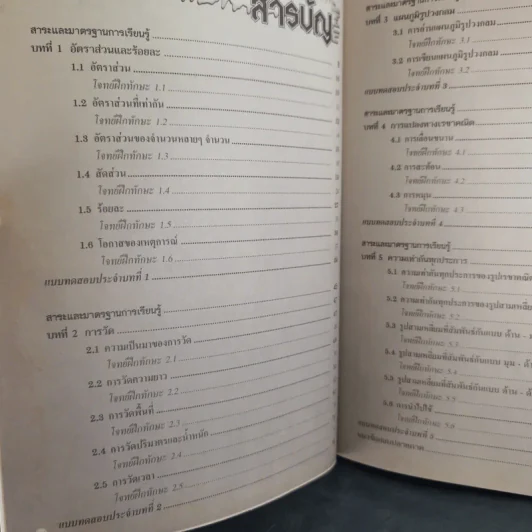 สารบัญ
สาระและมาตรฐานการเรียนรู้
บทที่ 1 อัตราส่วนและร้อยละ
1.1 อัตราส่วน
โจทย์ฝึกทักษะ 1.1
1.2 อัตราส่วนที่เท่ากัน
โจทย์ฝึกทักษะ 1.2
1.3 อัตราส่วนของจำนวนหลายๆ จำนวน
โจทย์ฝึกทักษะ 1.3
1.4 สัดส่วน
โจทย์ฝึกทักษะ 1.4
1.5 ร้อยละ
โจทย์ฝึกทักษะ 1.5
1.6 โอกาสของเหตุการณ์
โจทย์ฝึกทักษะ 1.6
แบบทดสอบประจำบทที่ 1
สาระและมาตรฐานการเรียนรู้
บทที่ 2 การวัด
2.1 ความเป็นมาของการวัด
โจทย์ฝึกทักษะ 2.1
2.2 การวัดความยาว
โจทย์ฝึกทักษะ 2.2
2.3 การวัดพื้นที่
โจทย์ฝึกทักษะ 2.3
2.4 การวัดปริมาตรและน้ำหนัก
โจทย์ฝึกทักษะ 2.4
2.5 การวัดเวลา
โจทย์ฝึกทักษะ 2.5
แบบทดสอบประจำบทที่ 2
บทที่ 3 แผนภูมิรูปวงกลม
3.1 การอ่านแผนภูมิรูปวงกลม
โจทย์ฝึกทักษะ 3.1
3.2 การเขียนแผนภูมิรูปวงกลม
โจทย์ฝึกทักษะ 3.2
แบบทดสอบประจำบทที่ 3
สาระและมาตรฐานการเรียนรู้
บทที่ 4 การแปลงทางเรขาคณิต
4.1 การเลื่อนขนาน
โจทย์ฝึกทักษะ 4.1
4.2 การสะท้อน
โจทย์ฝึกทักษะ 4.2
4.3 การหมุน
โจทย์ฝึกทักษะ 4.3
แบบทดสอบประจำบทที่ 4
สาระและมาตรฐานการเรียนรู้
บทที่ 5 ความเท่ากันทุกประการ
5.1 ความเท่ากันทุกประการของรูปเรขาคณิต
โจทย์ฝึกทักษะ 5.1
5.2 ความเท่ากันทุกประการของรูปสามเหลี่ยม
โจทย์ฝึกทักษะ 5.2
5.3 รูปสามเหลี่ยมที่สัมพันธ์กันแบบ ด้าน - ม
โจทย์ฝึกทักษะ 5.3
5.4 รูปสามเหลี่ยมที่สัมพันธ์กันแบบ มุม - ด้า
โจทย์ฝึกทักษะ 5.4
5.5 รูปสามเหลี่ยมที่สัมพันธ์กันแบบ ด้าน - ด้
โจทย์ฝึกทักษะ 5.5
5.6 การนำไปใช้
โจทย์ฝึกทักษะ 5.6
แบบทดสอบประจำบทที่ 5